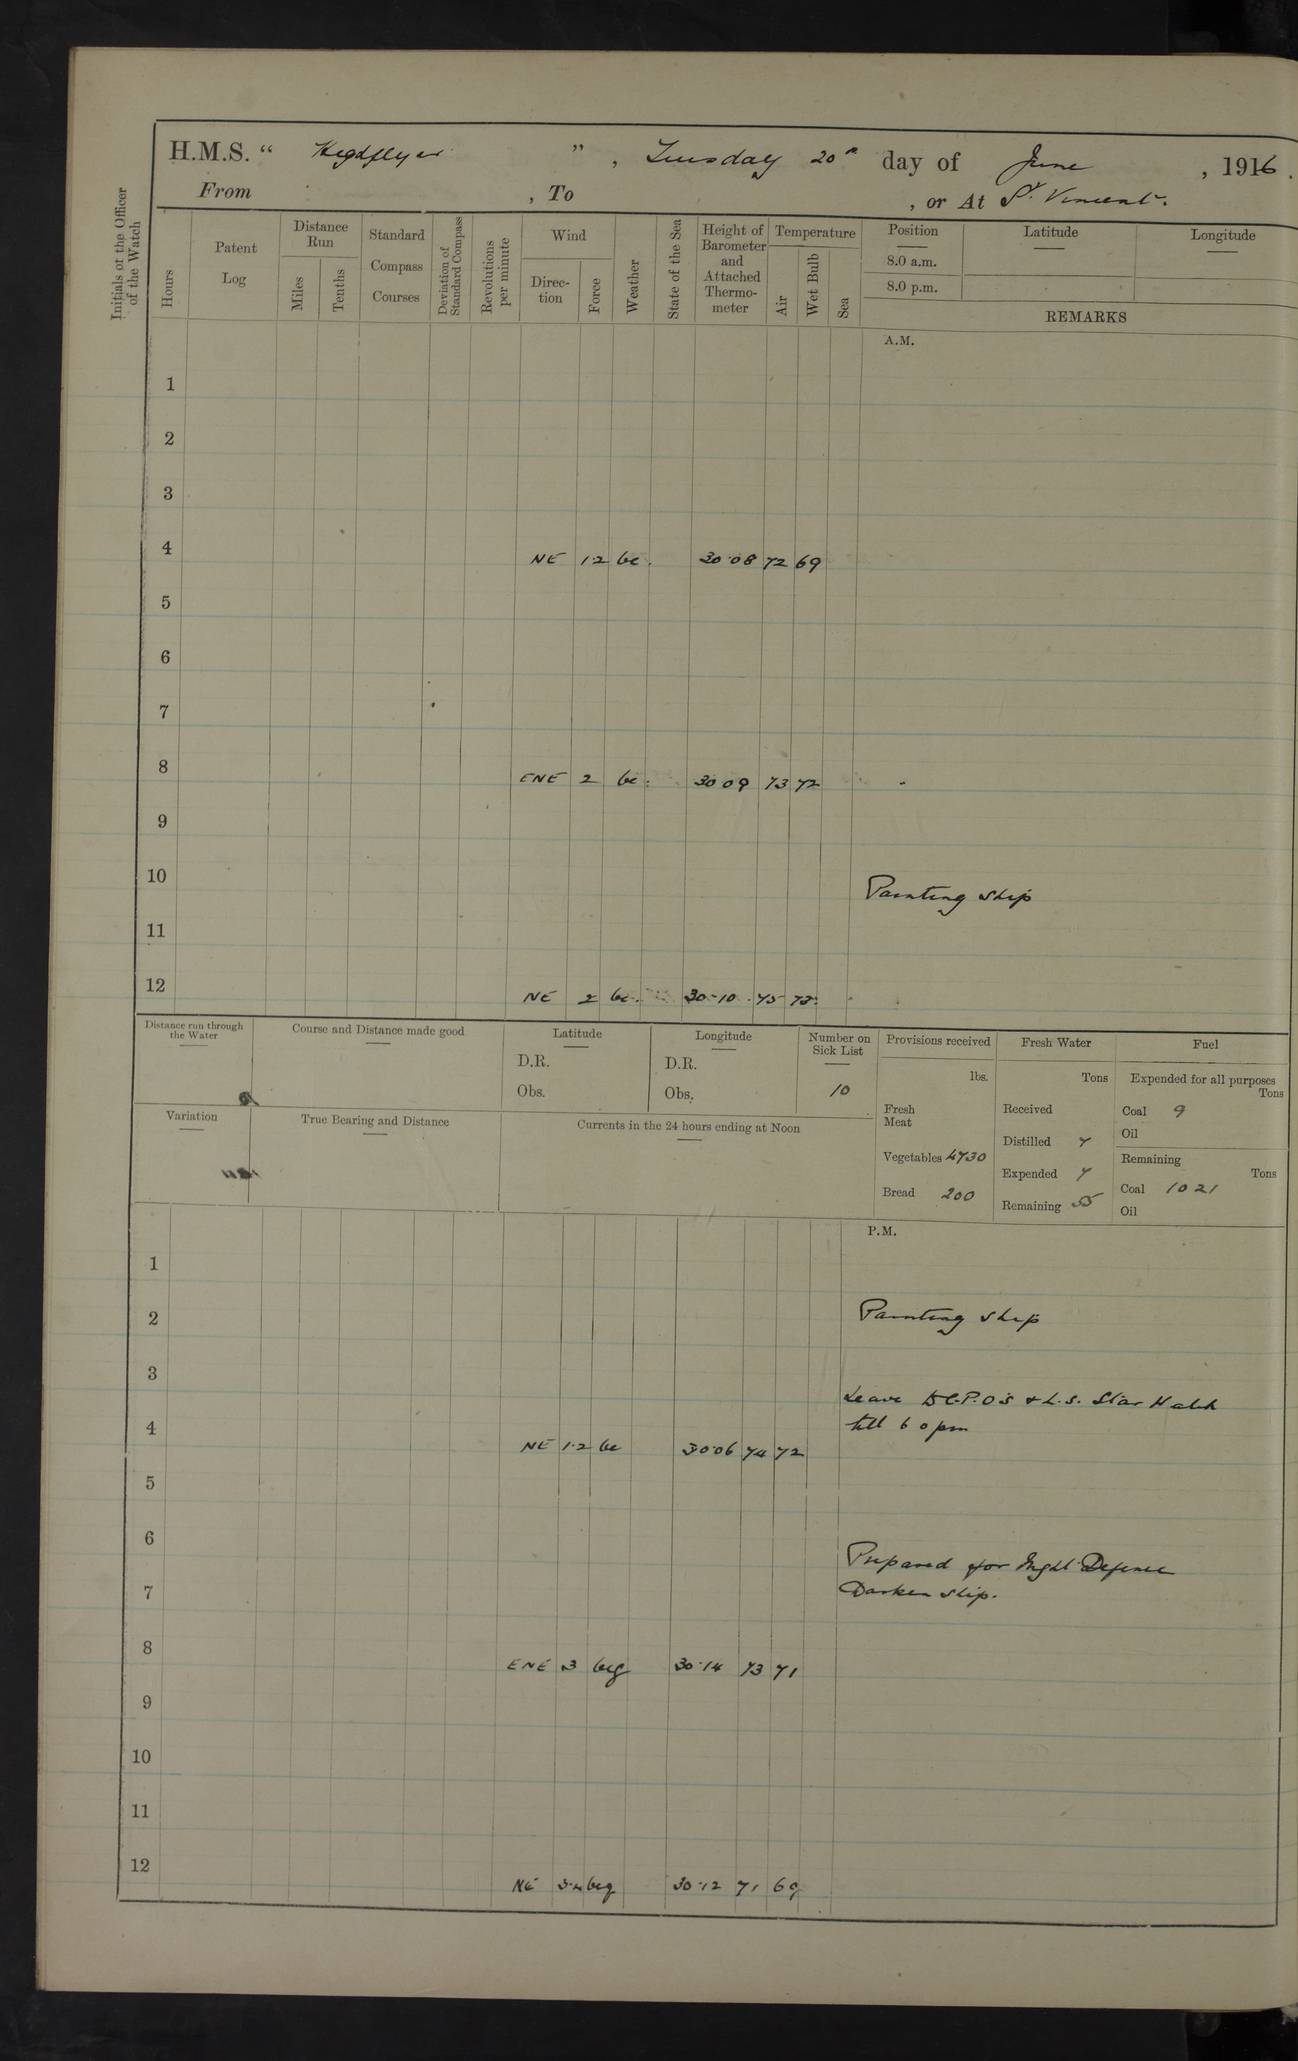 H.M.S. " Highflyer " , Tuesday 20th day of June , 1916 .
From , To , or At St. Vincent.
Initials of the Officer
of the Watch
Hours
Patent
Log
Distance
Run
Miles
Tenths
Standard
Compass
Courses
Deviation of
Standard Compass
Revolutions
per minute
Wind
Direc-
tion
Force
Weather
State of the Sea
Height of
Barometer
and
Attached
Thermo-
meter
Temperature
Air
Wet Bulb
Sea
Position Latitude Longitude
8.0 a.m.
8.0 p.m.
REMARKS
A.M.
1
2
3
4 NE 1·2 bc. 30·08 72 69
5
6
7
8 ENE 2 bc. 30 09 73 72
9
10 Painting ship
11
12 NE 2 bc. 30·10 75 73
Distance run through
the Water
Course and Distance made good
Latitude
D.R.
Obs.
Longitude
D.R.
Obs.
Number on
Sick List
10
Provisions received
lbs.
Fresh
Meat
Vegetables 4730
Bread 200
Fresh Water
Tons
Received
Distilled 7
Expended 7
Remaining 55
Fuel
Expended for all purposes
Tons
Coal 9
Oil
Remaining
Tons
Coal 1021
Oil
Variation
True Bearing and Distance
Currents in the 24 hours ending at Noon
P.M.
1
2 Painting ship
3
Leave to C.P.O's & L.S. Star Watch
till 6 0 pm
4 NE 1·2 bc 30·06 74 72
5
6
Prepared for Night Defence
7 Darken ship.
8 ENE 3 bcg 30·14 73 71
9
10
11
12 NE 3·4 bcg 30·12 71 69